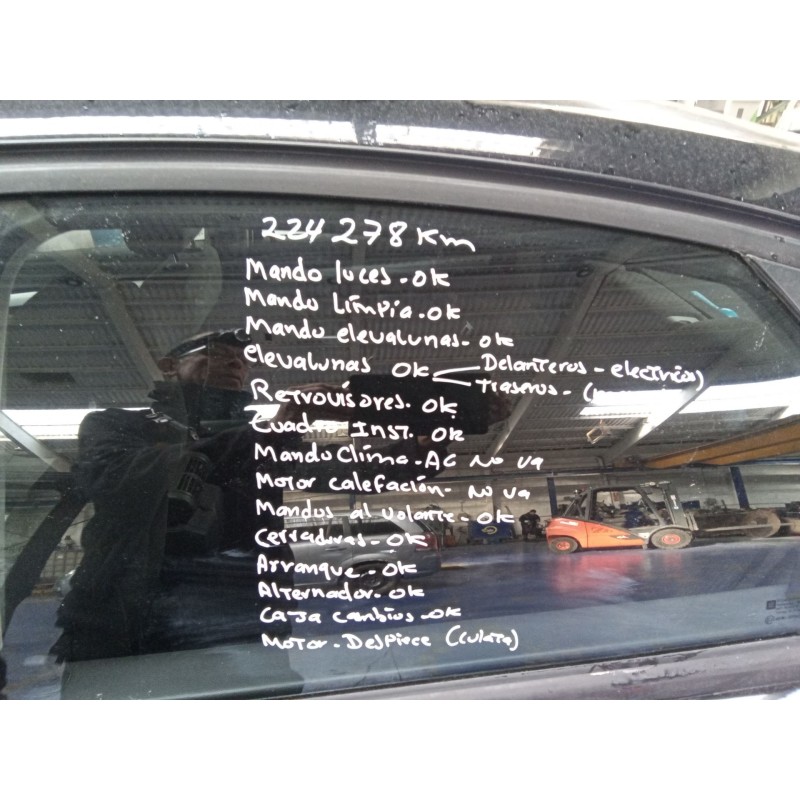 224278 Km
Mando luces - OK
Mando Limpia - OK
Mando elevalunas - OK
elevalunas OK
Delanteros - electricos)
Traseros - (
Retrovisores. OK
Cuadro Inst. OK
Mando Clima - AC No va
Motor calefación - No va
Mandos al volante - OK
Cerraduras - OK
Arranque - OK
Alternador - OK
Caja cambios - OK
Motor - Despiece (culata)